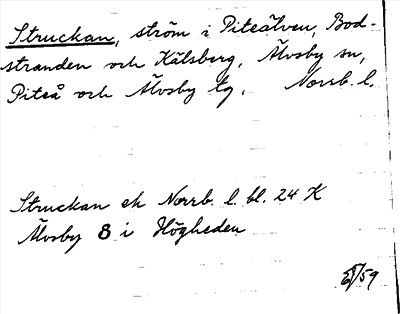 Struckan, ström i Piteälven, Bod-
stranden och Kälsberg, Älvsby sn,
Piteå och Älvsby tg, Norrb. l.
Struckan ek Norrb. l. bl. 24 K
Älvsby 8 i Högheden
/59